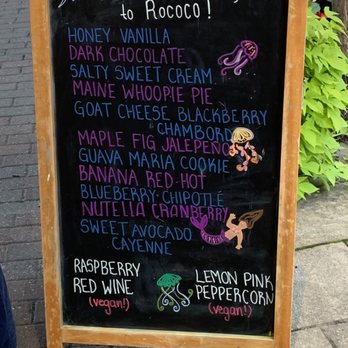 to Rococo!
HONEY VANILLA
DARK CHOCOLATE
SALTY SWEET CREAM
MAINE WHOOPIE PIE
GOAT CHEESE BLACKBERRY
& CHAMBORD
MAPLE FIG JALEPEÑO
GUAVA MARIA COOKIE
BANANA RED-HOT
BLUEBERRY-CHIPOTLÉ
NUTELLA CRANBERRY
SWEET AVOCADO
CAYENNE
RASPBERRY
RED WINE
(vegan!)
LEMON PINK
PEPPERCORN
(vegan!)